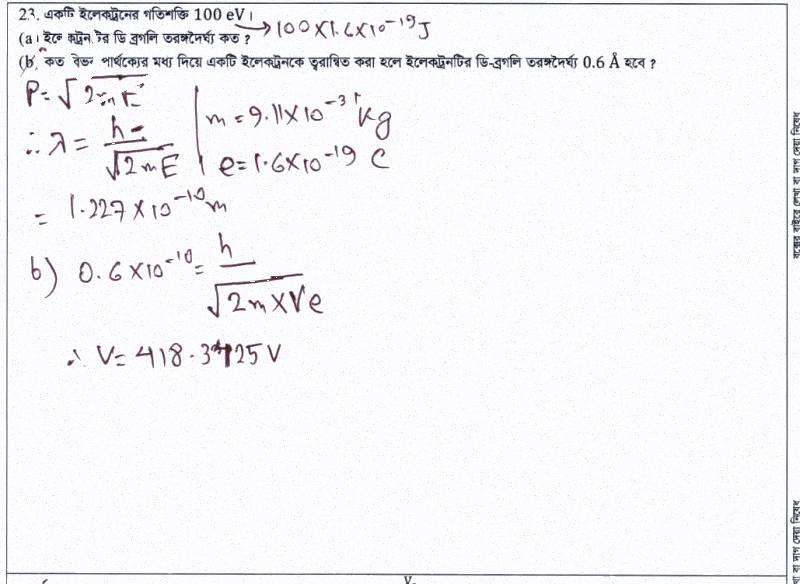 23. একটি ইলেকট্রনের গতিশক্তি 100 eV। → 100×1.6×10⁻¹⁹J
(a) ইলেকট্রনটির ডি ব্রগলি তরঙ্গদৈর্ঘ্য কত ?
(b) কত বিভব পার্থক্যের মধ্য দিয়ে একটি ইলেকট্রনকে ত্বরান্বিত করা হলে ইলেকট্রনটির ডি-ব্রগলি তরঙ্গদৈর্ঘ্য 0.6 Å হবে ?
P = √2mE
m = 9.11×10⁻³¹ kg
∴ λ = h/√2mE
e = 1.6×10⁻¹⁹ C
= 1.227×10⁻¹⁰ m
b) 0.6×10⁻¹⁰ = h/√2m×Ve
∴ V = 418.3 25 V
বক্সের বাইরে লেখা বা দাগ দেয়া নিষেধ
বা দাগ দেয়া নিষেধ